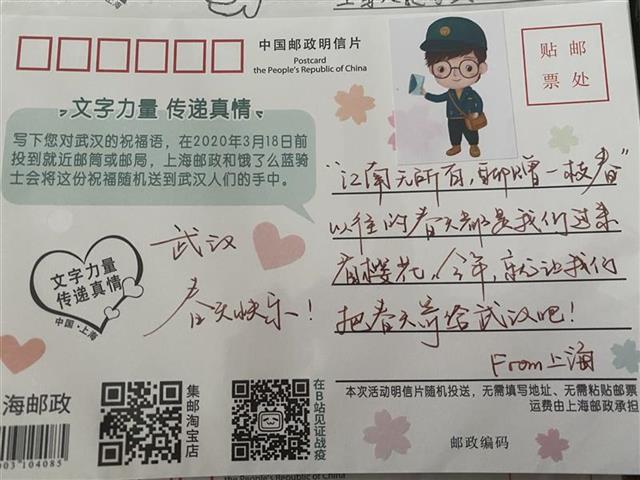 中国邮政明信片
Postcard
the People's Republic of China
贴邮
票处
文字力量 传递真情
写下您对武汉的祝福语，在2020年3月18日前
投到就近邮筒或邮局，上海邮政和饿了么蓝骑
士会将这份祝福随机送到武汉人们的手中。
"江南无所有，聊赠一枝春"
以往的春天都是我们过来
看樱花，今年，就让我们
把春天寄给武汉吧！
From 上海
武汉
春天快乐！
文字力量
传递真情
中国·上海
海邮政
003104085
集邮淘宝店
在B站见证战疫
本次活动明信片随机投送，无需填写地址、无需粘贴邮票
运费由上海邮政承担
邮政编码
the People's Republic of China